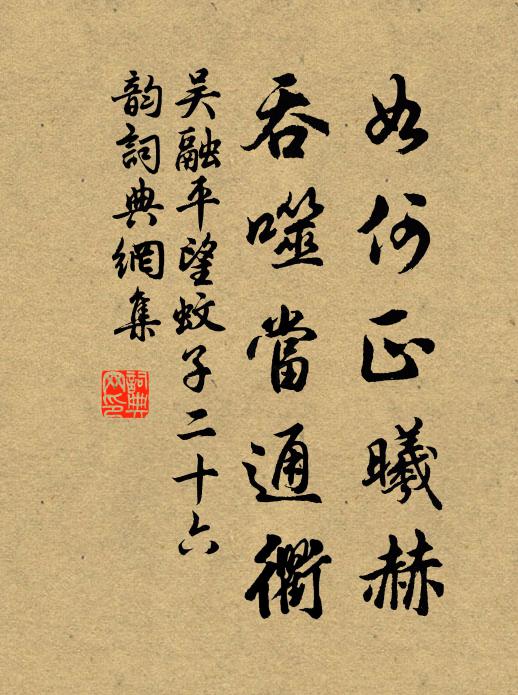 如何正曦赫
吞噬當通衢
吴融平望蚊子二十六
韵詞典網集
詞典網印